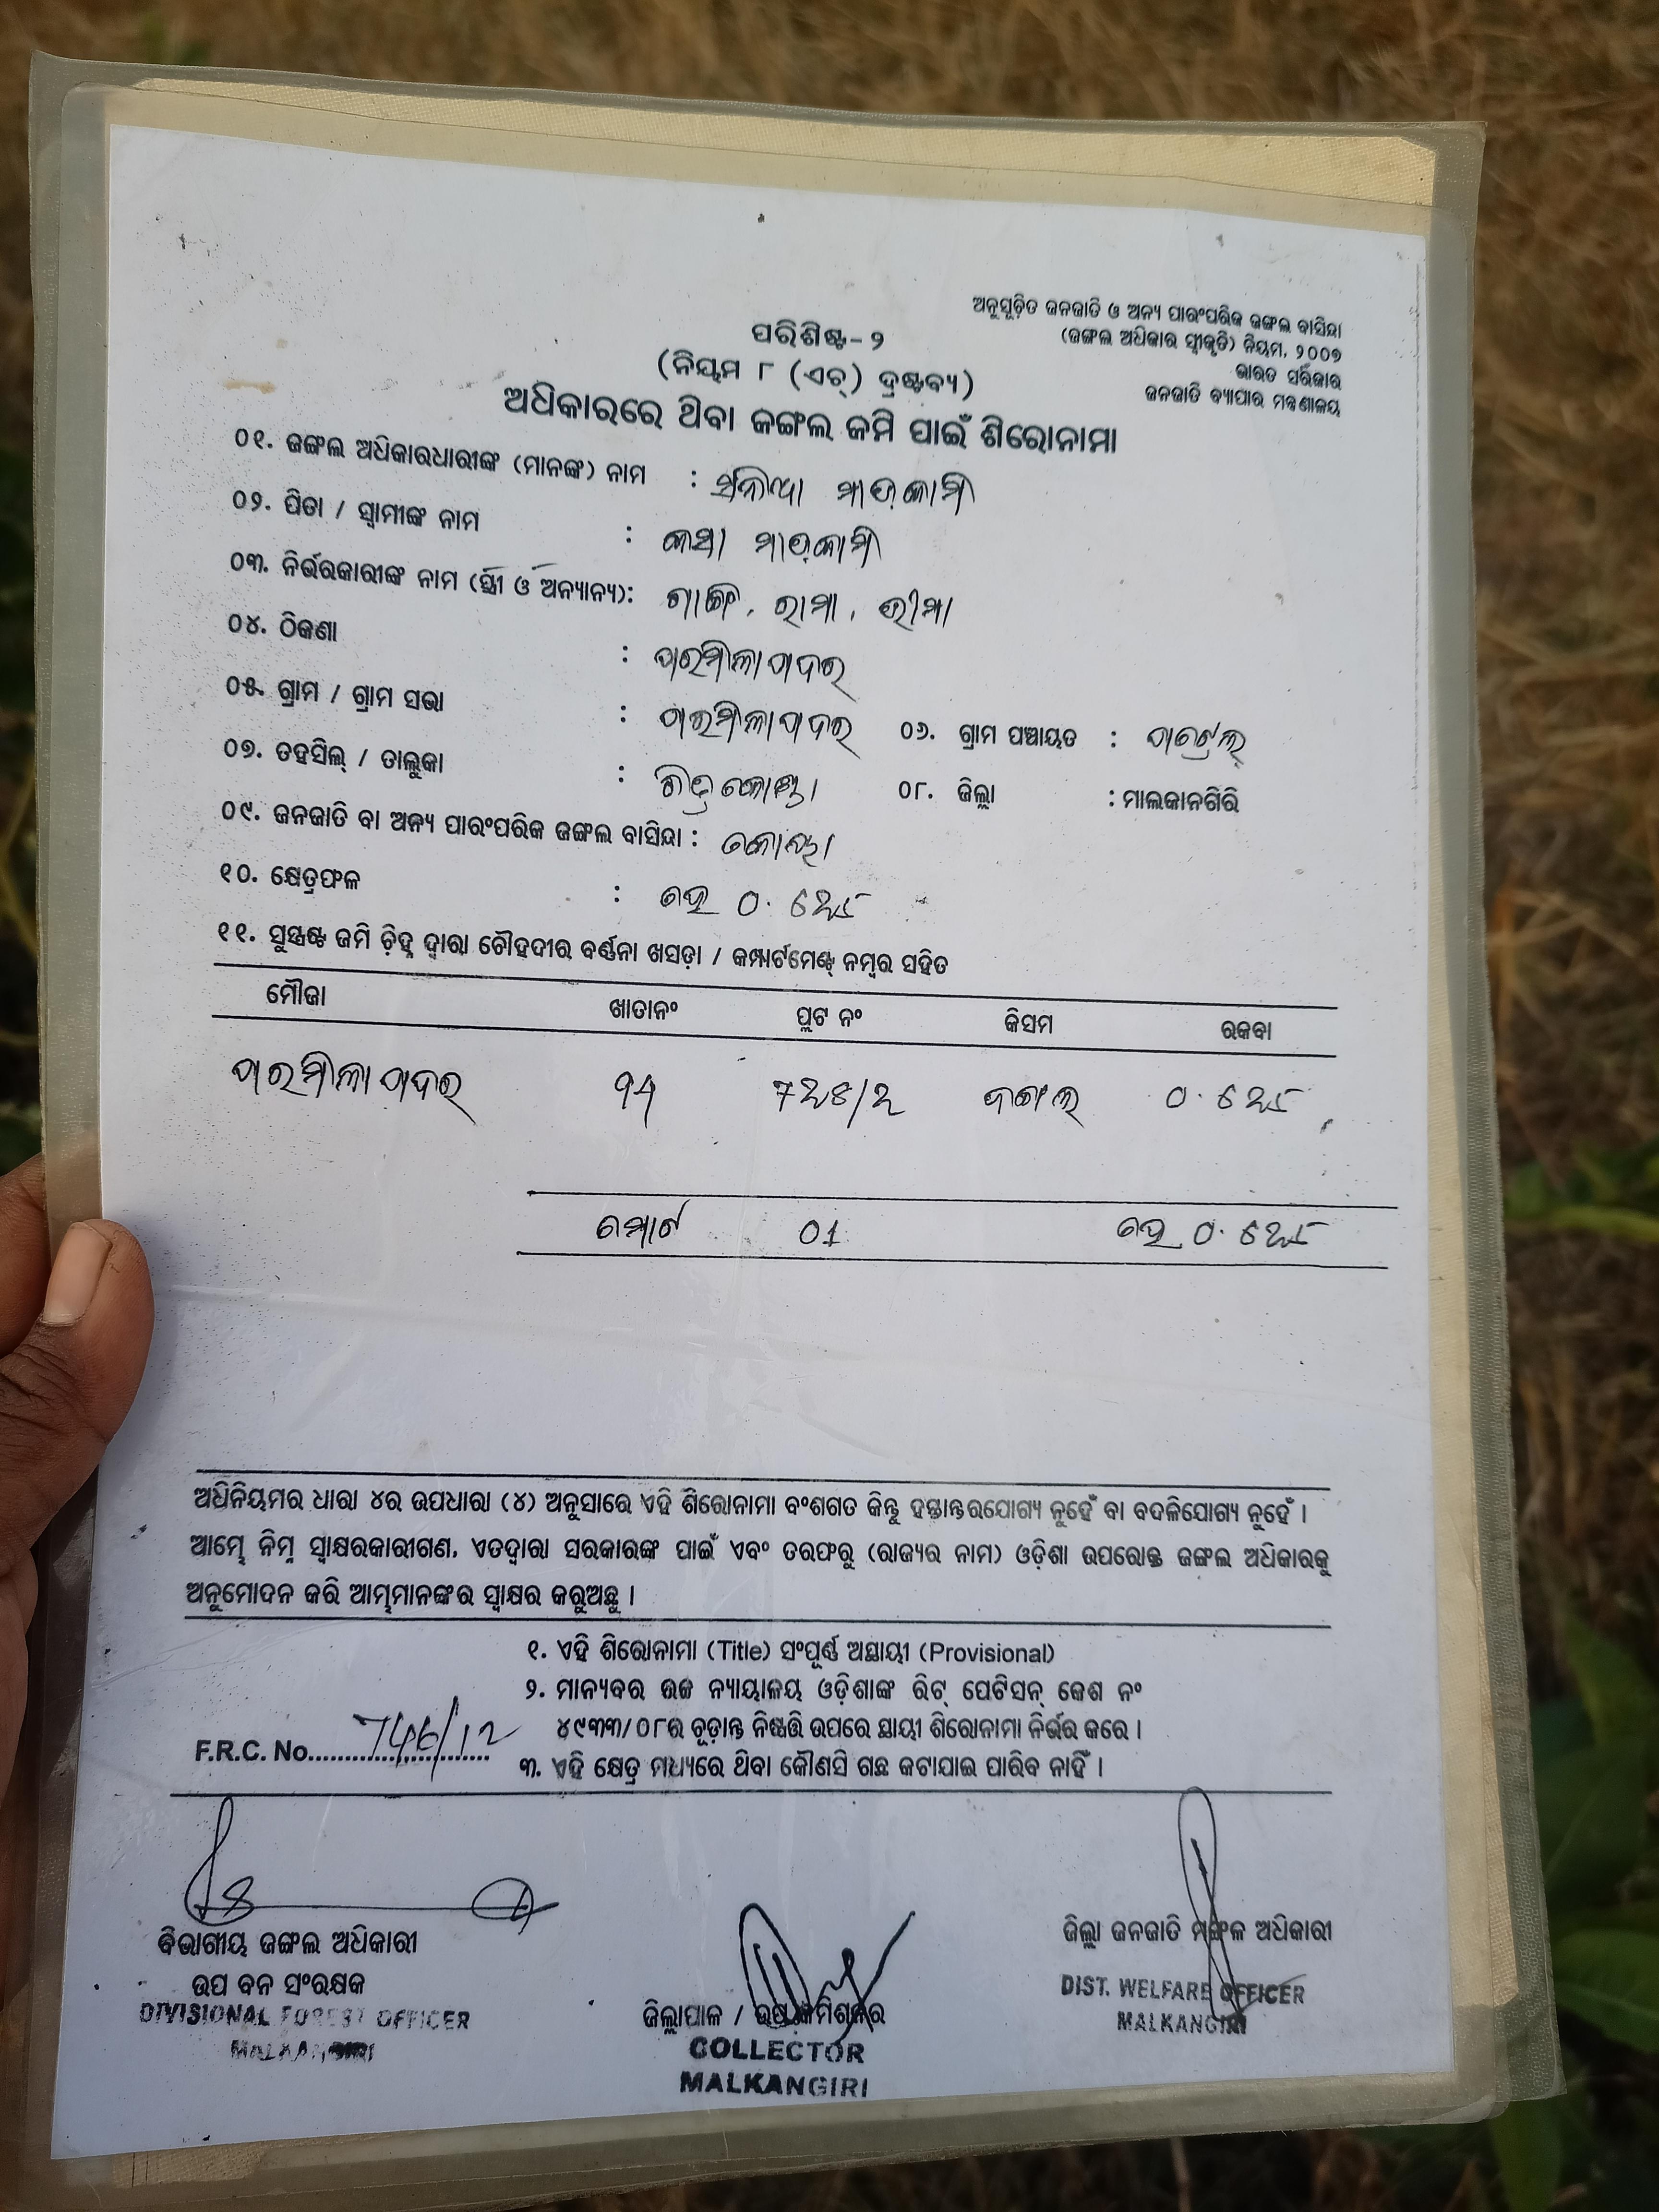 ଅନୁସୂଚିତ ଜନଜାତି ଓ ଅନ୍ୟ ପାରଂପରିକ ଜଙ୍ଗଲ ବାସିନ୍ଦା
(ଜଙ୍ଗଲ ଅଧିକାର ସ୍ୱୀକୃତି) ନିୟମ, ୨୦୦୭
ଭାରତ ସରକାର
ଜନଜାତି ବ୍ୟାପାର ମନ୍ତ୍ରଣାଳୟ
ପରିଶିଷ୍ଟ-୨
(ନିୟମ ୮ (ଏଚ୍) ଦ୍ରଷ୍ଟବ୍ୟ)
ଅଧିକାରରେ ଥିବା ଜଙ୍ଗଲ ଜମି ପାଇଁ ଶିରୋନାମା
୦୧. ଜଙ୍ଗଲ ଅଧିକାରଧାରୀଙ୍କ (ମାନଙ୍କ) ନାମ : ମାଡ଼କାମି
୦୨. ପିତା / ସ୍ୱାମୀଙ୍କ ନାମ : ମାଡ଼କାମି
୦୩. ନିର୍ଭରକାରୀଙ୍କ ନାମ (ସ୍ତ୍ରୀ ଓ ଅନ୍ୟାନ୍ୟ): ଗାଙ୍ଗି, ରାମା, ଭୀମା
୦୪. ଠିକଣା : ପାରମିଲାପଦର
୦୫. ଗ୍ରାମ / ଗ୍ରାମ ସଭା : ପାରମିଲାପଦର ୦୬. ଗ୍ରାମ ପଞ୍ଚାୟତ :
୦୭. ତହସିଲ୍ / ତାଲୁକା : ୦୮. ଜିଲ୍ଲା : ମାଲକାନଗିରି
୦୯. ଜନଜାତି ବା ଅନ୍ୟ ପାରଂପରିକ ଜଙ୍ଗଲ ବାସିନ୍ଦା : କୋୟା
୧୦. କ୍ଷେତ୍ରଫଳ : ହେ ୦.
୧୧. ସୁସ୍ପଷ୍ଟ ଜମି ଚିହ୍ନ ଦ୍ୱାରା ଚୌହଦୀର ବର୍ଣ୍ଣନା ଖସଡ଼ା / କମ୍ପାର୍ଟମେଣ୍ଟ୍ ନମ୍ବର ସହିତ
ମୌଜା ଖାତାନଂ ପ୍ଲଟ ନଂ କିସମ ରକବା
ପାରମିଲାପଦର ଜଙ୍ଗଲ ୦.
ମୋଟ 01 ହେ ୦.
ଅଧିନିୟମର ଧାରା ୪ର ଉପଧାରା (୪) ଅନୁସାରେ ଏହି ଶିରୋନାମା ବଂଶଗତ କିନ୍ତୁ ହସ୍ତାନ୍ତରଯୋଗ୍ୟ ନୁହେଁ ବା ବଦଳିଯୋଗ୍ୟ ନୁହେଁ ।
ଆମ୍ଭେ ନିମ୍ନ ସ୍ୱାକ୍ଷରକାରୀଗଣ, ଏତଦ୍ୱାରା ସରକାରଙ୍କ ପାଇଁ ଏବଂ ତରଫରୁ (ରାଜ୍ୟର ନାମ) ଓଡ଼ିଶା ଉପରୋକ୍ତ ଜଙ୍ଗଲ ଅଧିକାରକୁ
ଅନୁମୋଦନ କରି ଆମ୍ଭମାନଙ୍କର ସ୍ୱାକ୍ଷର କରୁଅଛୁ ।
୧. ଏହି ଶିରୋନାମା (Title) ସଂପୂର୍ଣ୍ଣ ଅସ୍ଥାୟୀ (Provisional)
୨. ମାନ୍ୟବର ଉଚ୍ଚ ନ୍ୟାୟାଳୟ ଓଡ଼ିଶାଙ୍କ ରିଟ୍ ପେଟିସନ୍ କେଶ ନଂ
୪୯୩୩/୦୮ର ଚୂଡ଼ାନ୍ତ ନିଷ୍ପତ୍ତି ଉପରେ ସ୍ଥାୟୀ ଶିରୋନାମା ନିର୍ଭର କରେ ।
F.R.C. No. 746/12
୩. ଏହି କ୍ଷେତ୍ର ମଧ୍ୟରେ ଥିବା କୌଣସି ଗଛ କଟାଯାଇ ପାରିବ ନାହିଁ ।
ବିଭାଗୀୟ ଜଙ୍ଗଲ ଅଧିକାରୀ
ଉପ ବନ ସଂରକ୍ଷକ
DIVISIONAL FOREST OFFICER
MALKANGIRI
ଜିଲ୍ଲାପାଳ / ଉପ କମିଶନର
COLLECTOR
MALKANGIRI
ଜିଲ୍ଲା ଜନଜାତି ମଙ୍ଗଳ ଅଧିକାରୀ
DIST. WELFARE OFFICER
MALKANGIRI